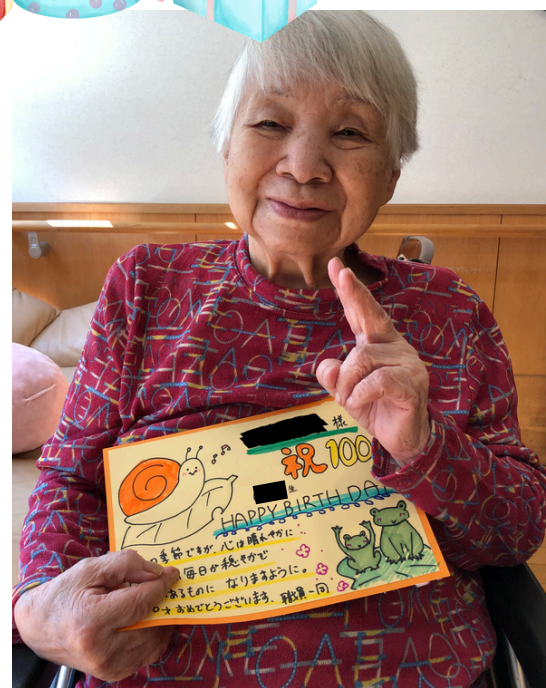 様
祝100
生
HAPPY BIRTHDAY
季節ですが、心は晴れやかに
毎日が穏やかで
あるものに なりますように。
おめでとうございます。職員一同